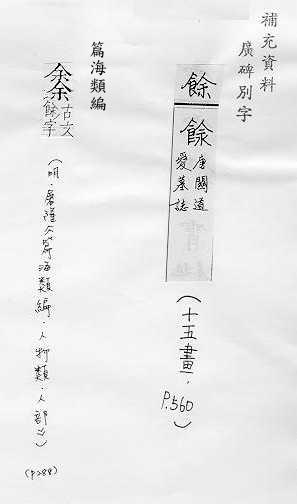 補充資料
廣碑別字
餘
餘
唐關道
愛墓誌
(十五畫，
P.560)
篇海類編
𠎳
古文
餘字
(明‧屠隆《篇海類編‧人物類‧人部》)
(P288)